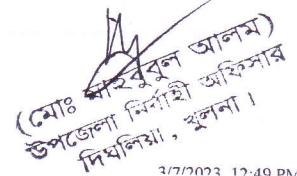 (মোঃ মাহবুবুল আলম)
উপজেলা নির্বাহী অফিসার
দিঘলিয়া, খুলনা।
3/7/2023 12:49 PM